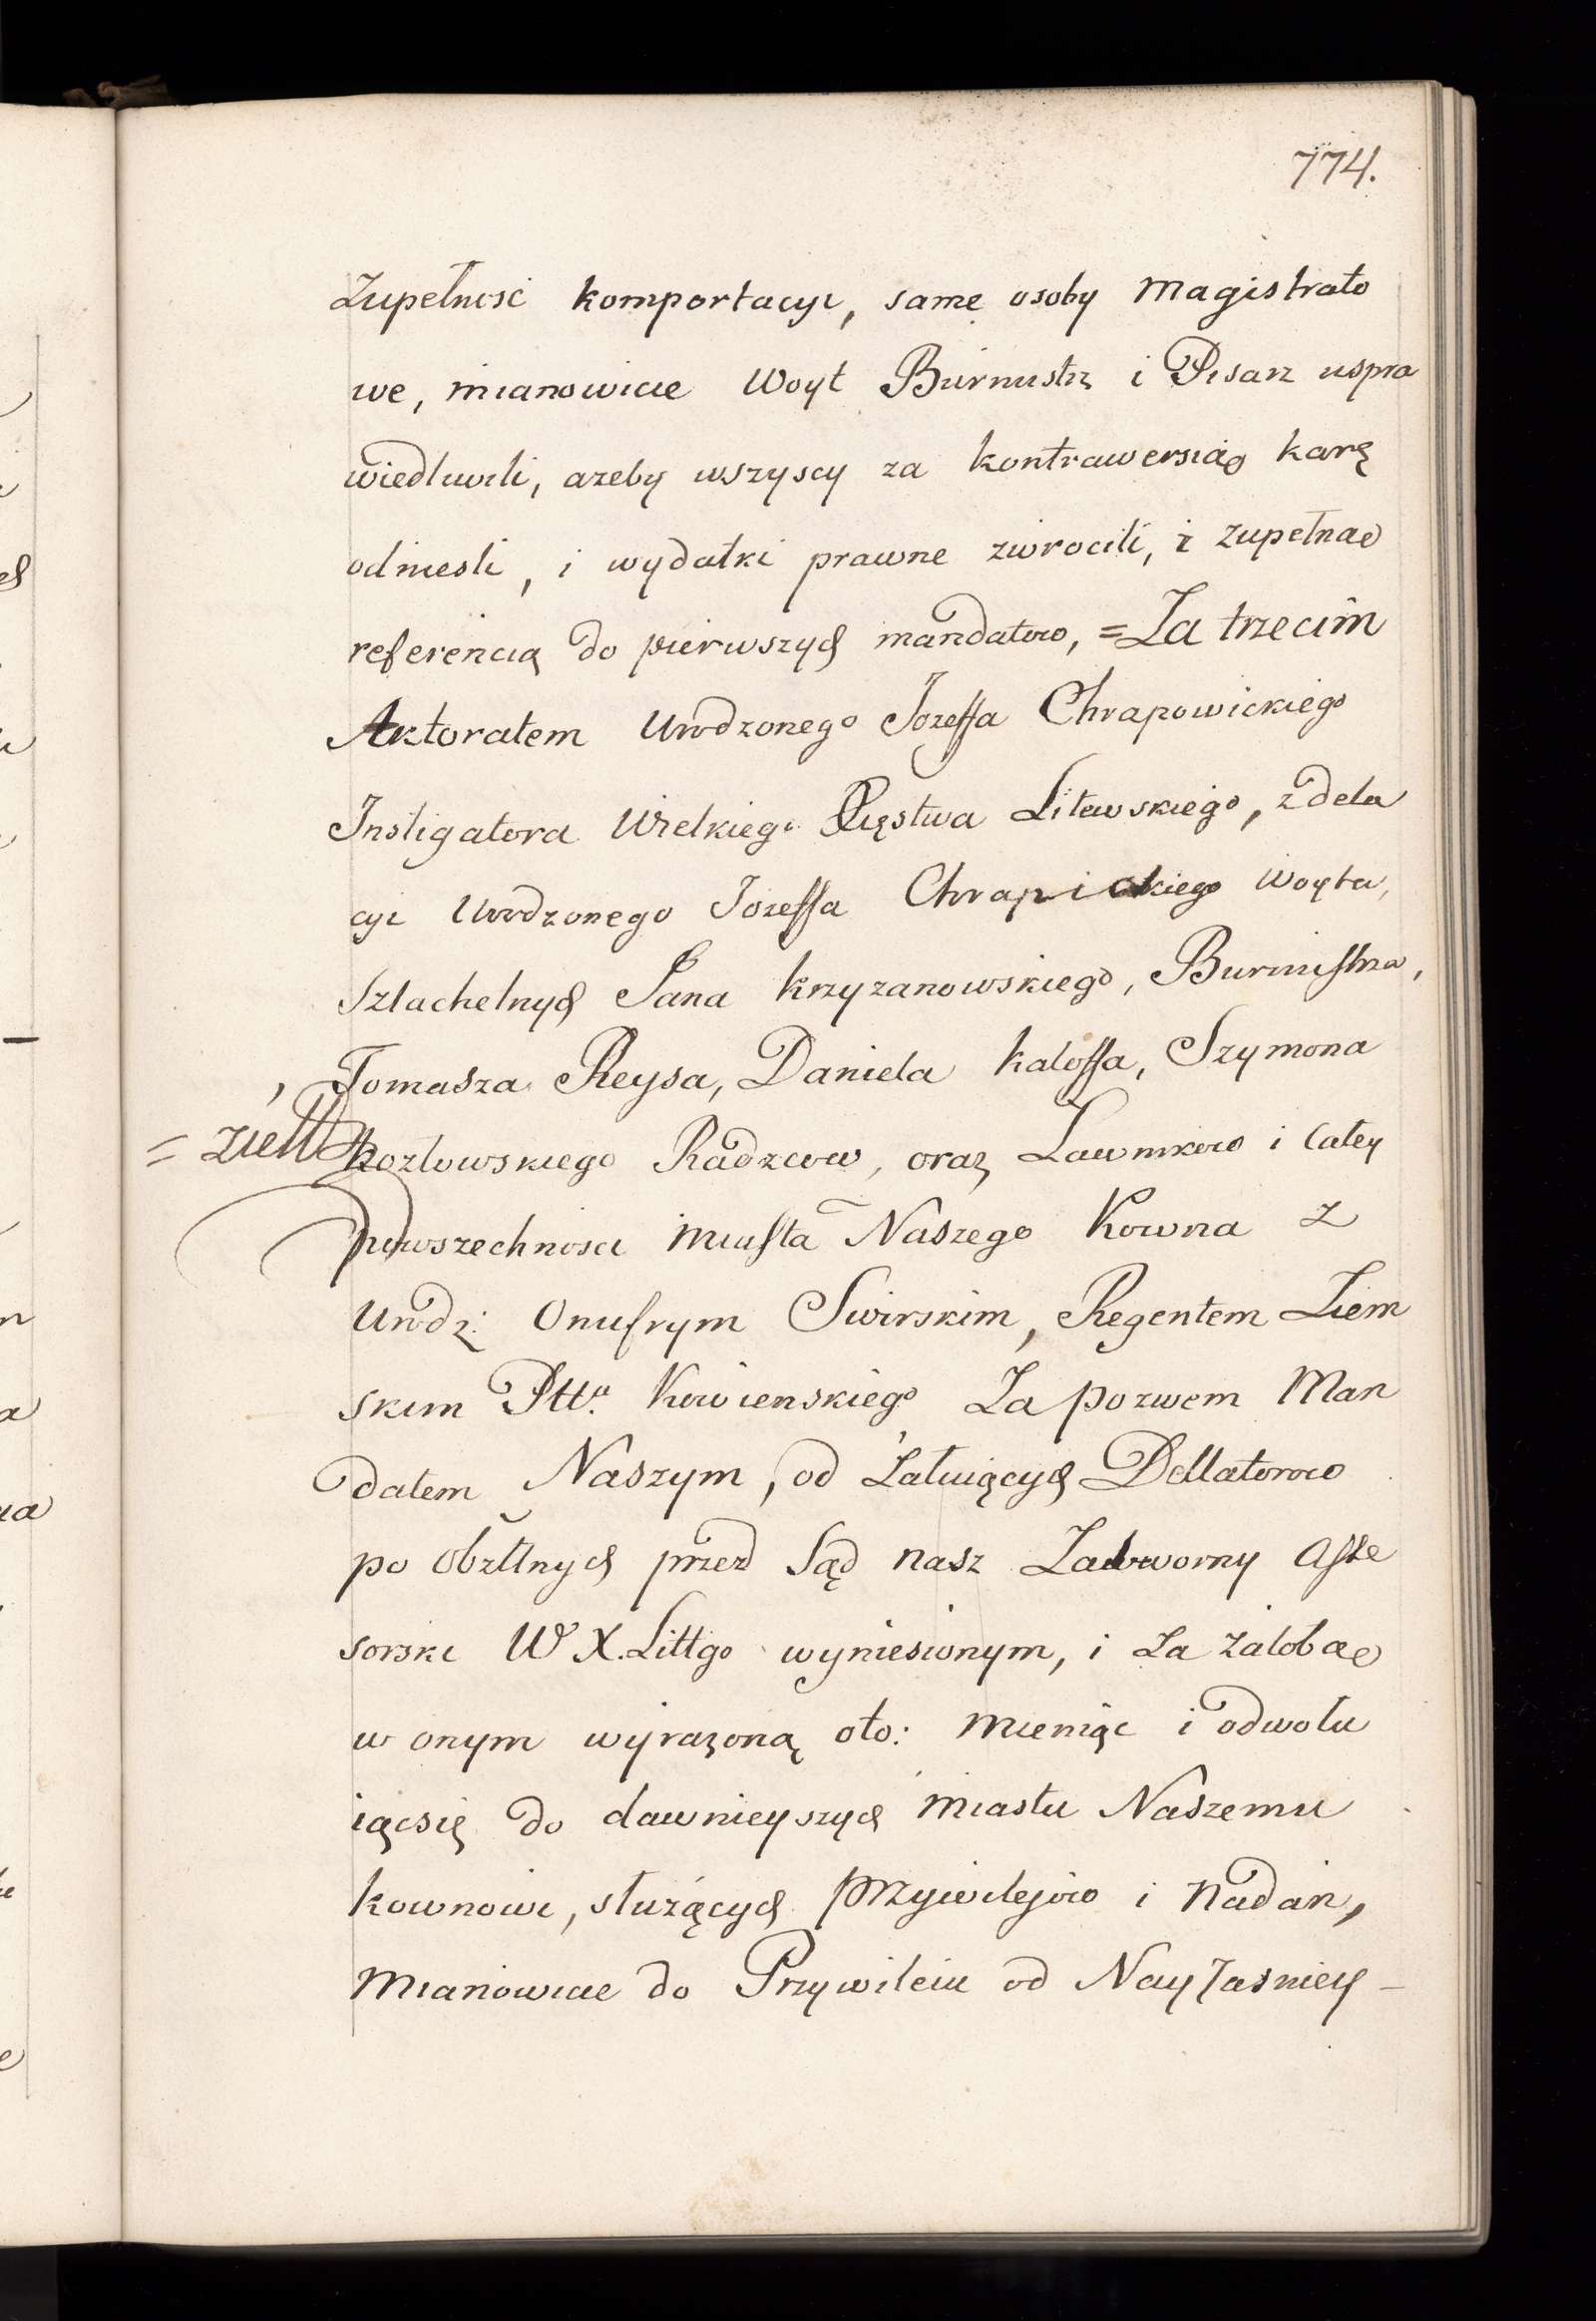 774.
Zupełność komportacyi, same osoby Magistrato
we, mianowicie Woyt Burmistrz i Pisarz uspra
wiedliwili, azeby wszyscy za kontrawersią karę
odniesli, i wydatki prawne zwrocili, i zupełną
referencią do pierwszych mandatow, = Za trzecim
Aktoratem Urodzonego Jozeffa Chrapowickiego
Instigatora Wielkiego Xięstwa Litewskiego, z dela
cyi Urodzonego Jozeffa Chrapickiego Woyta,
Szlachetnych Jana Krzyzanowskiego, Burmistrza,
Tomasza Reysa, Daniela Kaloffa, Szymona
Kozłowskiego Radzcow, oraz Ławnikow i całey
powszechnosci Miasta Naszego Kowna z
Urodz: Onufrym Swirskim, Regentem Ziem
skim Pttu. Kowienskiego Za pozwem Man
datem Naszym, od Żałuiących Dellatorow
po Obżłnych przed Sąd nasz Zadworny Asse
sorski W X. Littgo wyniesionym, i za żałobą
w onym wyrazoną oto: Mieniąc i odwołu
iącsię do dawnieyszych Miastu Naszemu
Kownowi, służących Przywilejow i Nadań,
Mianowicie do Przywileiu od NayJasniey –